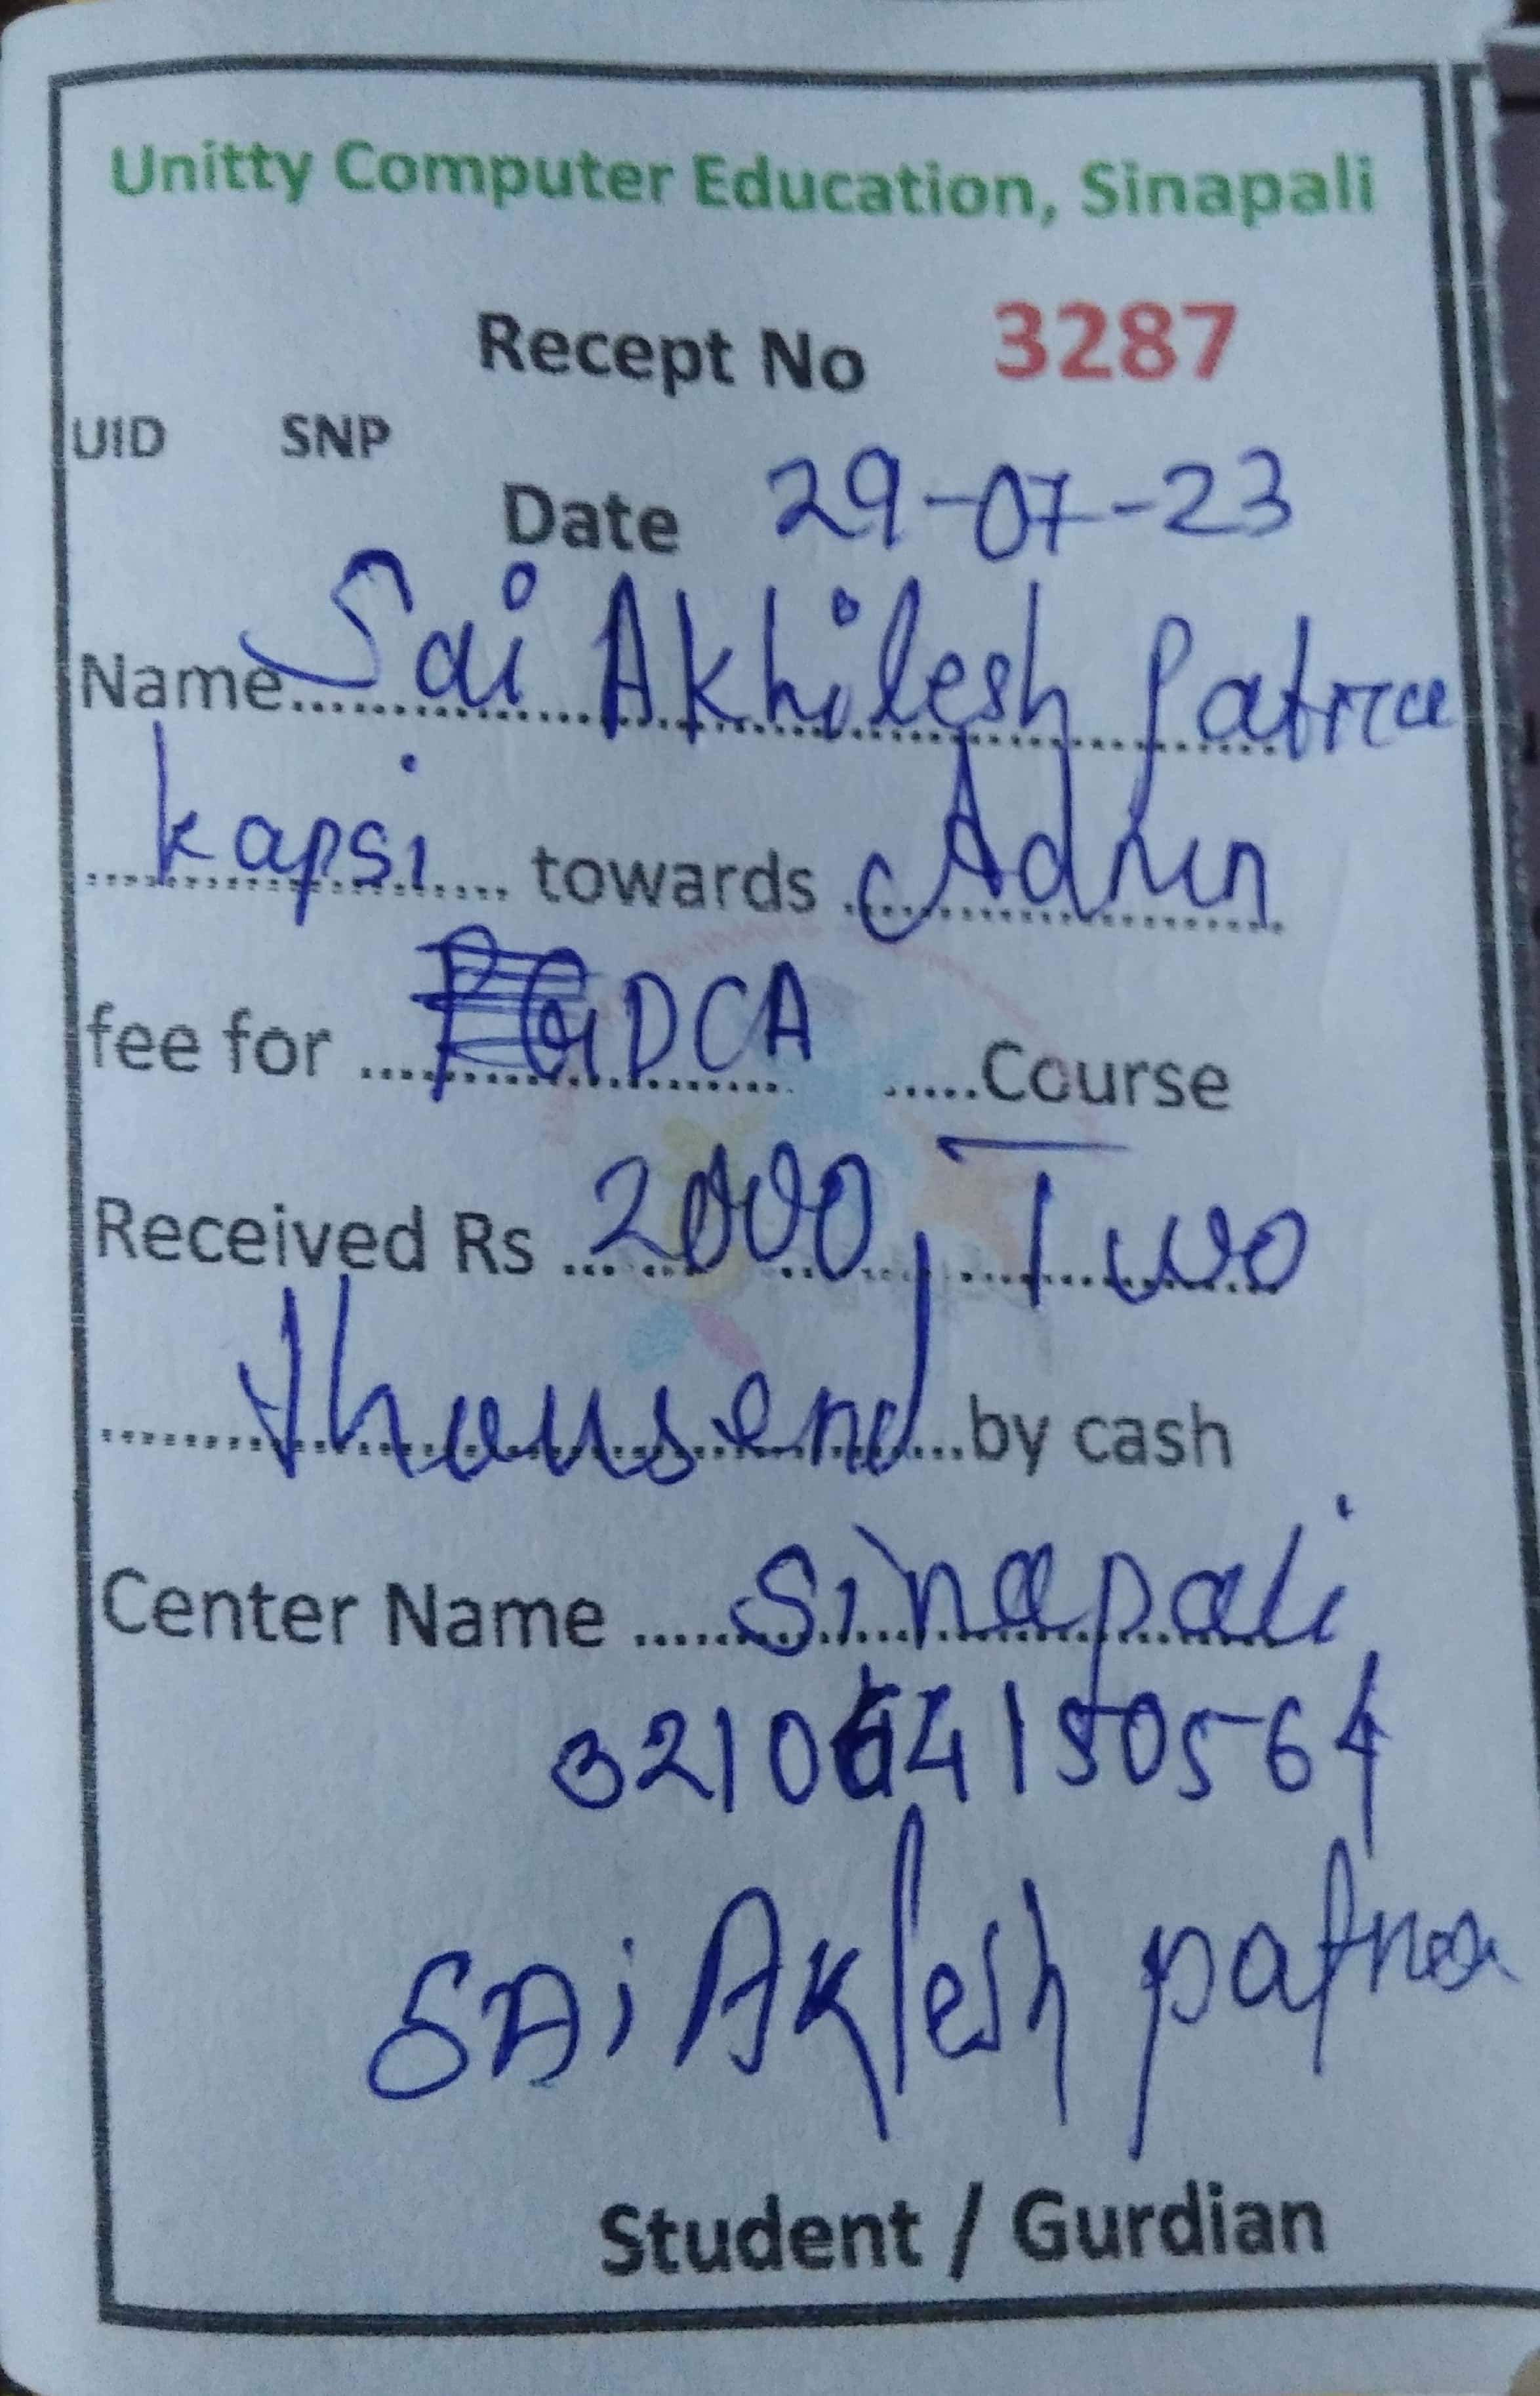 Unitty Computer Education, Sinapali
Recept No 3287
UID SNP
Date 29-07-23
Name Sai Akhilesh Patra
kapsi towards Admn
fee for DCA Course
Received Rs 2000, Two
thousend by cash
Center Name Sinapali
SAi Aklesh patra
Student / Gurdian